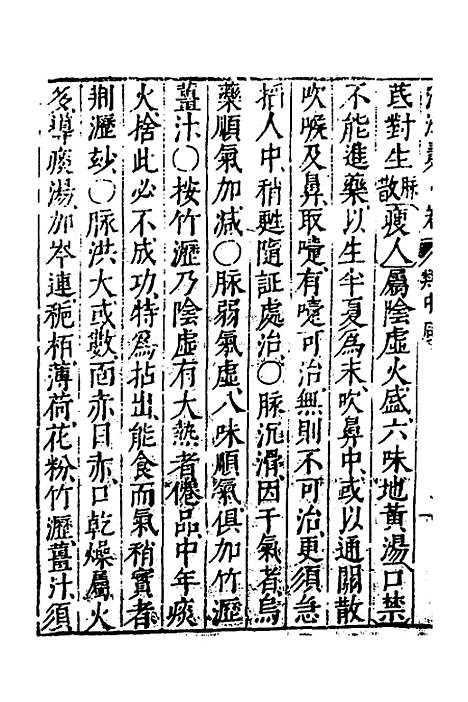 芪對生脉散瘦人屬陰虛火盛六味地黃湯口禁
不能進藥以生半夏為末吹鼻中或以通關散
吹喉及鼻取嚏有嚏可治無則不可治更須急
掐人中稍甦隨証處治○脉沉滑因于氣者烏
藥順氣加減○脉弱氣虛八味順氣俱加竹瀝
薑汁○按竹瀝乃陰虛有大熱者倦品中年痰
火捨此必不成功特為拈出能食而氣稍實者
荆瀝玅○脉洪大或數面赤目赤口乾燥屬火
多導痰湯加岑連梔栢薄荷花粉竹瀝薑汁須